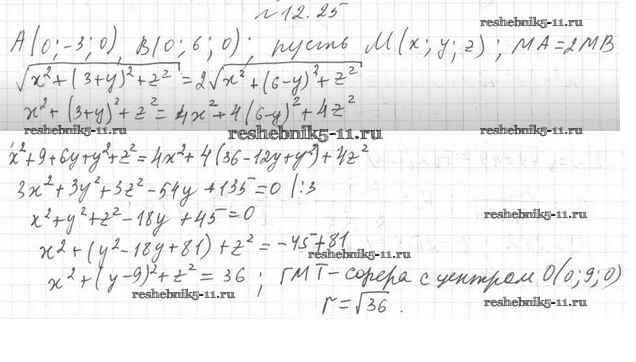 №12.25
reshebnik5-11.ru
reshebnik5-11.ru
A(0;-3;0), B(0;6;0); пусть M(x;y;z); MA=2MB
√x²+(3+y)²+z² = 2√x²+(6-y)²+z²
x²+(3+y)²+z² = 4x²+4(6-y)²+4z²
reshebnik5-11.ru
reshebnik5-11.ru
reshebnik5-11.ru
x²+9+6y+y²+z²=4x²+4(36-12y+y²)+4z²
3x²+3y²+3z²-54y+135=0 |:3
reshebnik5-11.ru
x²+y²+z²-18y+45=0
x²+(y²-18y+81)+z²=-45+81
reshebnik5-11.ru
x²+(y-9)²+z²=36; ГМТ-сфера с центром O(0;9;0)
reshebnik5-11.ru
reshebnik5-11.ru
r=√36.